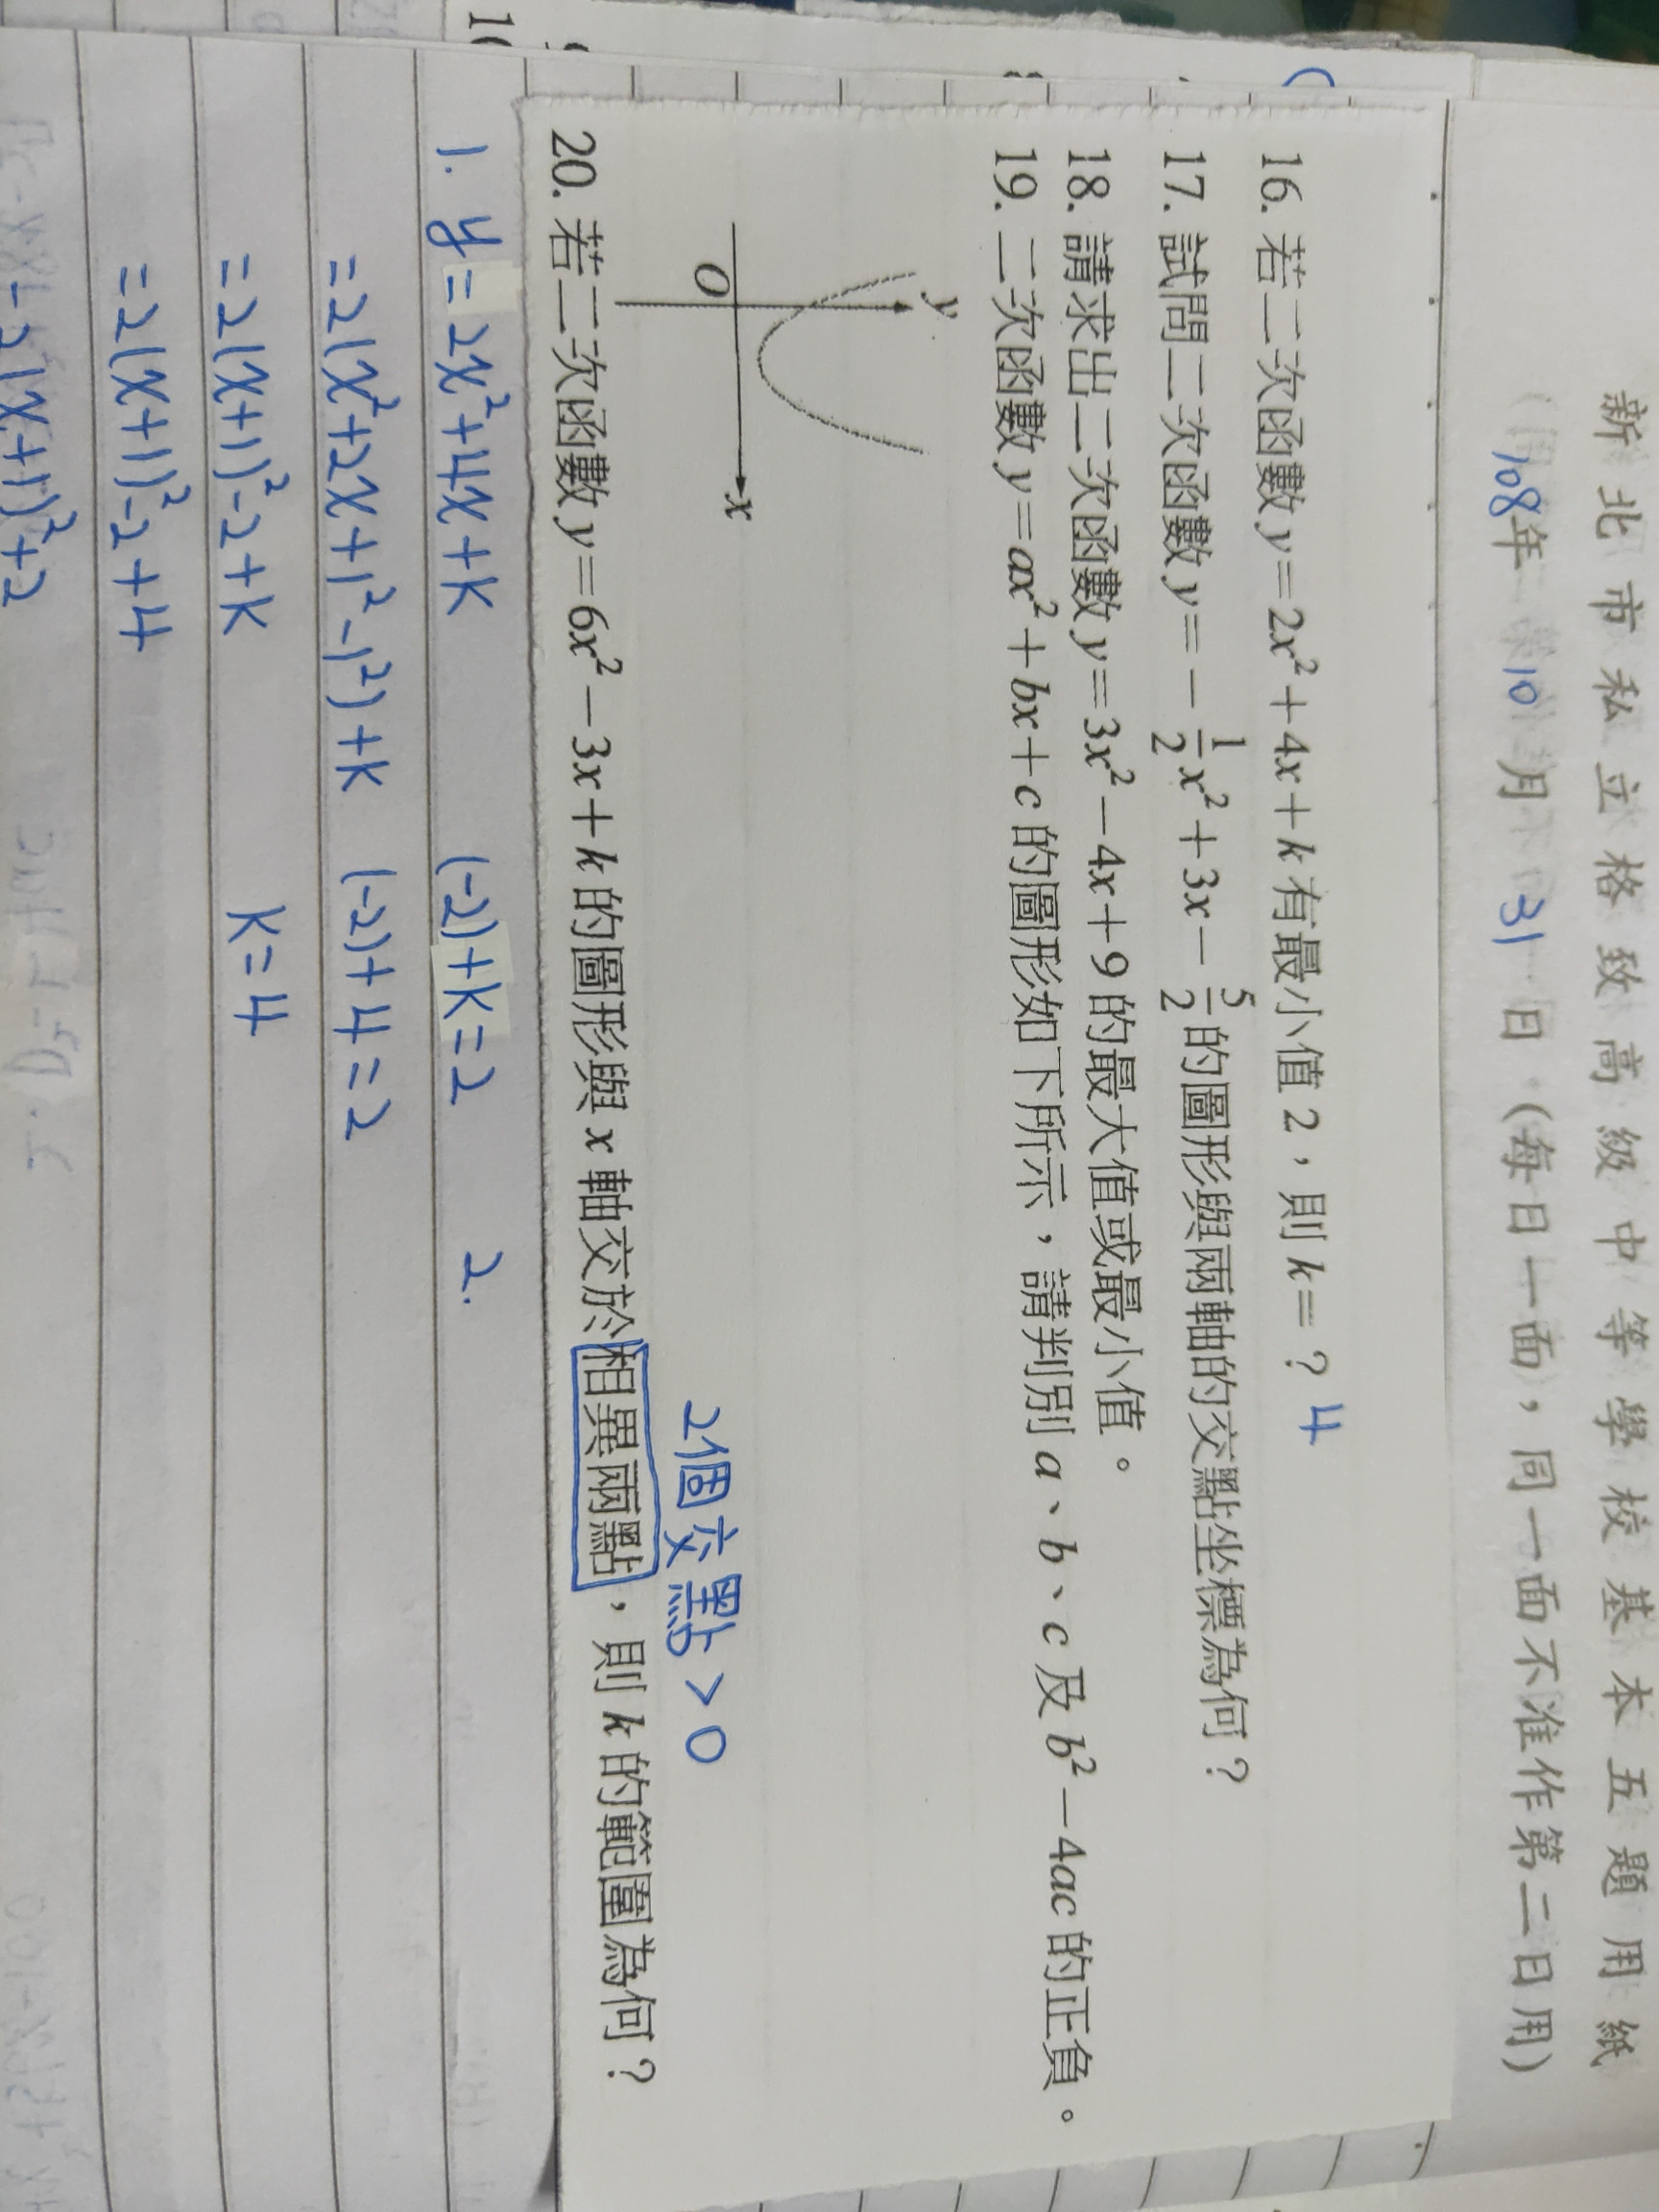 新北市私立格致高級中等學校基本五題用紙
108年 10月 31日（每日一面，同一面不准作第二日用）
16. 若二次函數 y=2x²+4x+k 有最小值 2，則 k=？ 4
17. 試問二次函數 y=-1/2x²+3x-5/2 的圖形與兩軸的交點坐標為何？
18. 請求出二次函數 y=3x²-4x+9 的最大值或最小值。
19. 二次函數 y=ax²+bx+c 的圖形如下所示，請判別 a、b、c 及 b²-4ac 的正負。
y
O
x
2個交點>0
20. 若二次函數 y=6x²-3x+k 的圖形與 x 軸交於相異兩點，則 k 的範圍為何？
1. y=2x²+4x+k (-2)+k=2 2.
=2(x²+2x+1²-1²)+k (-2)+4=2
=2(x+1)²-2+k k=4
=2(x+1)²-2+4
=2(x+1)²+2